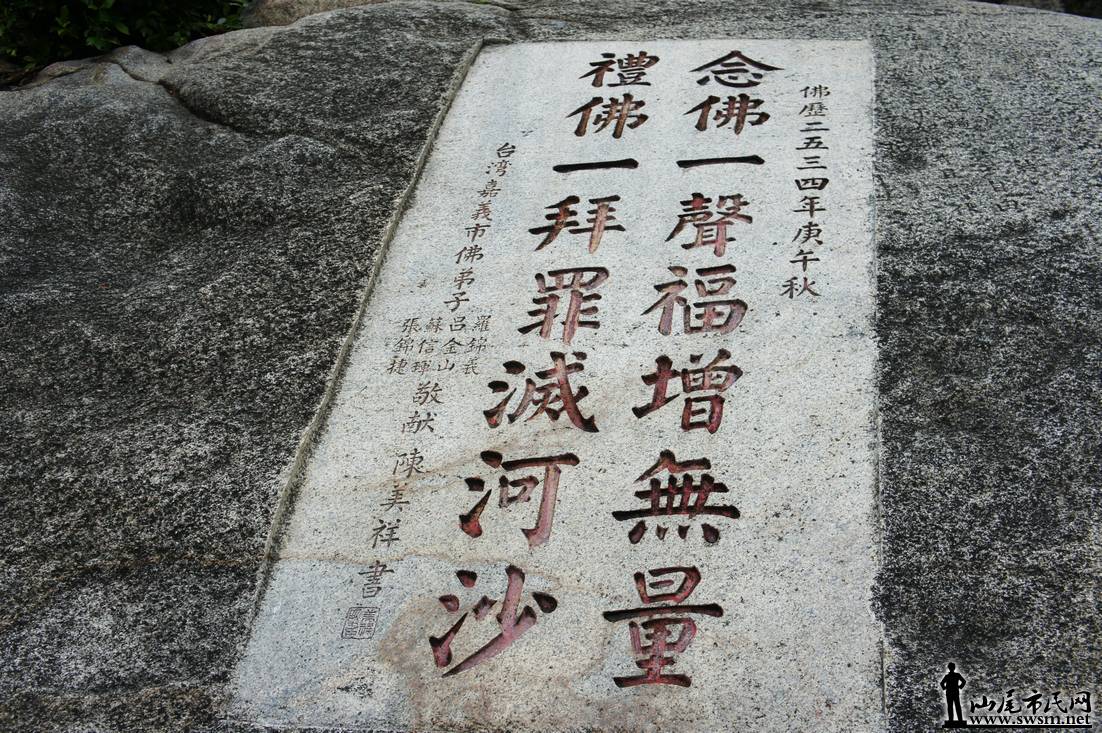 佛歷二五三四年庚午秋
念佛一聲福增無量
禮佛一拜罪滅河沙
台湾嘉義市佛弟子
羅錦義
呂金山
蘇信琿
張錦捷
敬献
陳美祥書
山尾市民网
www.swsm.net